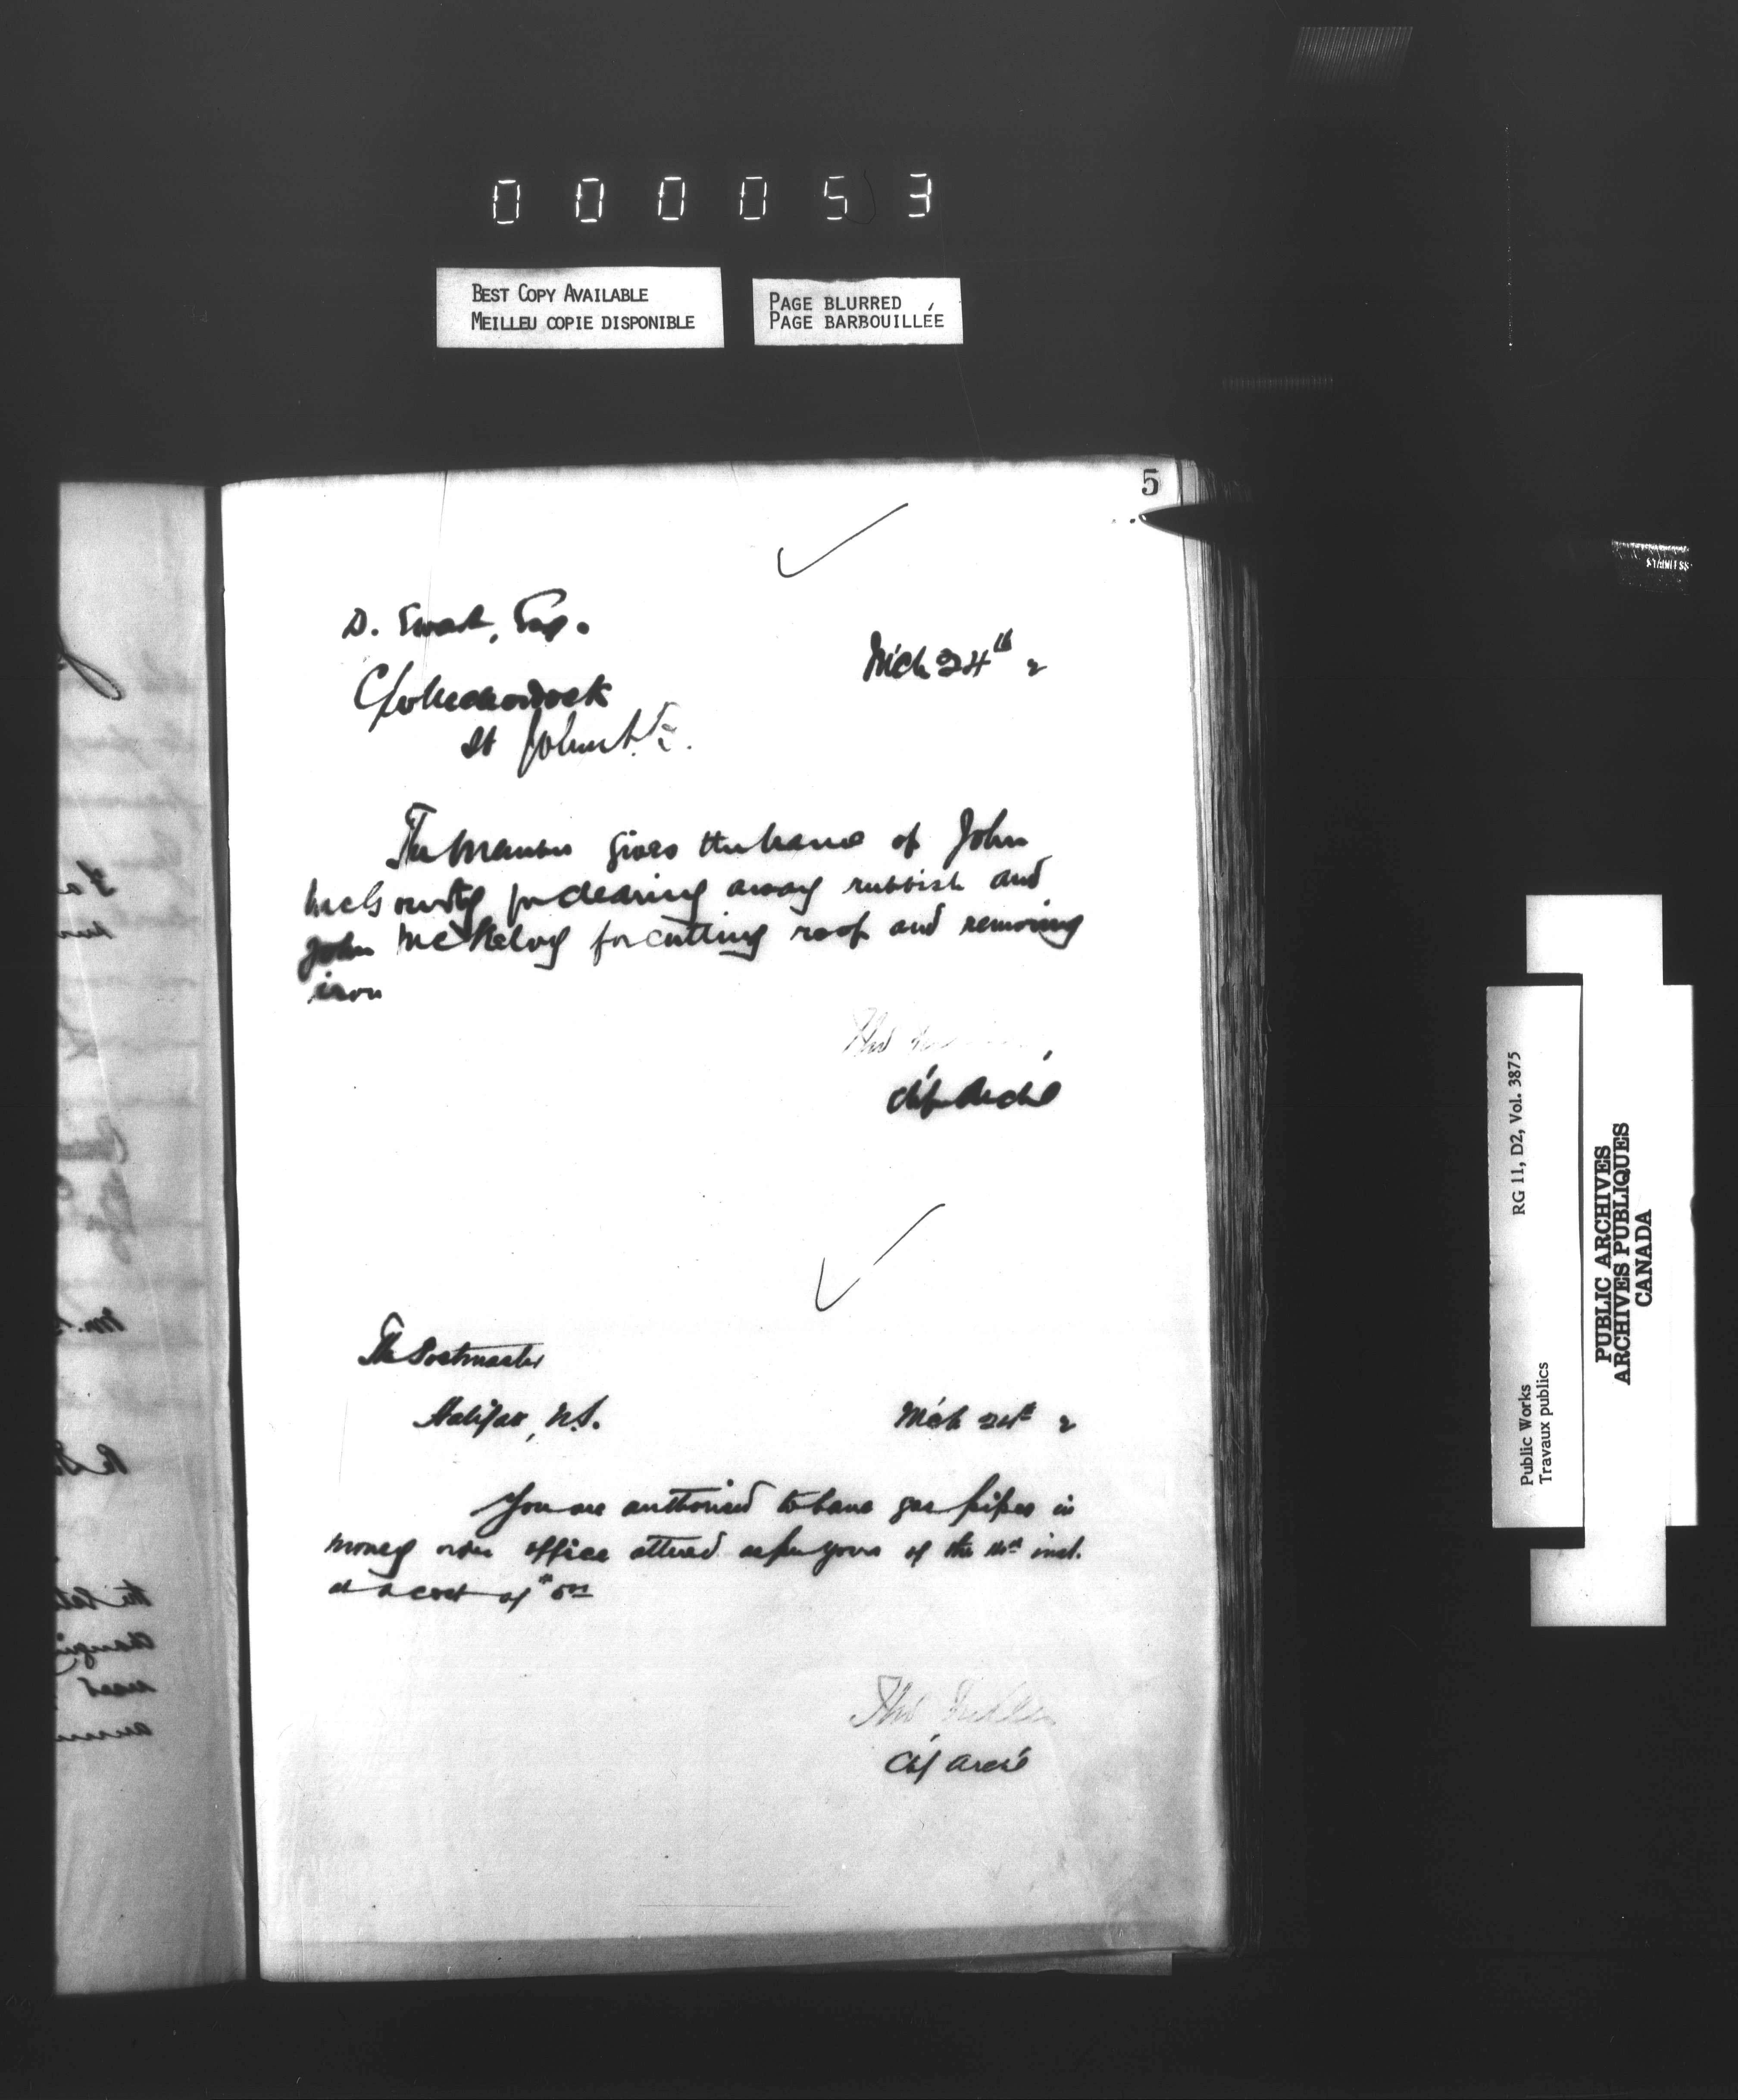 000053
BEST COPY AVAILABLE
MEILLEU COPIE DISPONIBLE
PAGE BLURRED
PAGE BARBOUILLÉE
5
D. Ewart, Esq.
Mch 24th 2
St John
gives the name of John
for clearing away rubbish and
John McKelvey for cutting roof and removing
iron
Thos
The Postmaster
Halifax, N.S.
Mch 24th 2
You are authorised to have gas pipes in
money order office altered as per yours of the inst.
at a cost of
Thos Fuller
Chf Archt
RG 11, D2, Vol. 3875
Public Works
Travaux publics
PUBLIC ARCHIVES
ARCHIVES PUBLIQUES
CANADA